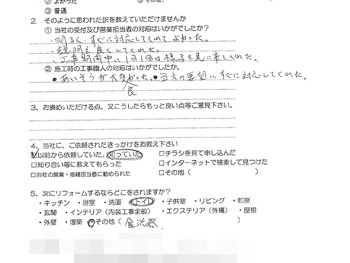 ② よかった
③ 普通
2. そのように思われた訳を教えていただけませんか
① 当社の受付及び営業担当者の対応はいかがでしたか？
・明るくすぐに対応してくれてよかった。
・説明も良くしてくれた。
・工事期間中に1日1回は様子を見に来てくれた。
② 施工時の工事職人の対応はいかがでしたか。
・あいそうが大変良かった。・当方の要望にすぐに対応してくれた。
3、お褒めいただける点、又こうしたらもっと良い点等ご意見下さい。
4、当社に、ご依頼されたきっかけをお教え下さい
以前から依頼していた。知っていた □チラシを見て申し込んだ
□知り合い等に教えてもらった □インターネットで検索して見つけた
□当社の営業・専権担当者に勧められ □その他（ ）
5、次にリフォームするならどこをされますか？
・キッチン ・浴室 ・洗面 ・トイレ ・子供室 ・リビング ・和室
・玄関 ・インテリア（内装工事全般） ・エクステリア（外構） ・屋根
・外壁 ・増築 ・その他（食洗器 ）